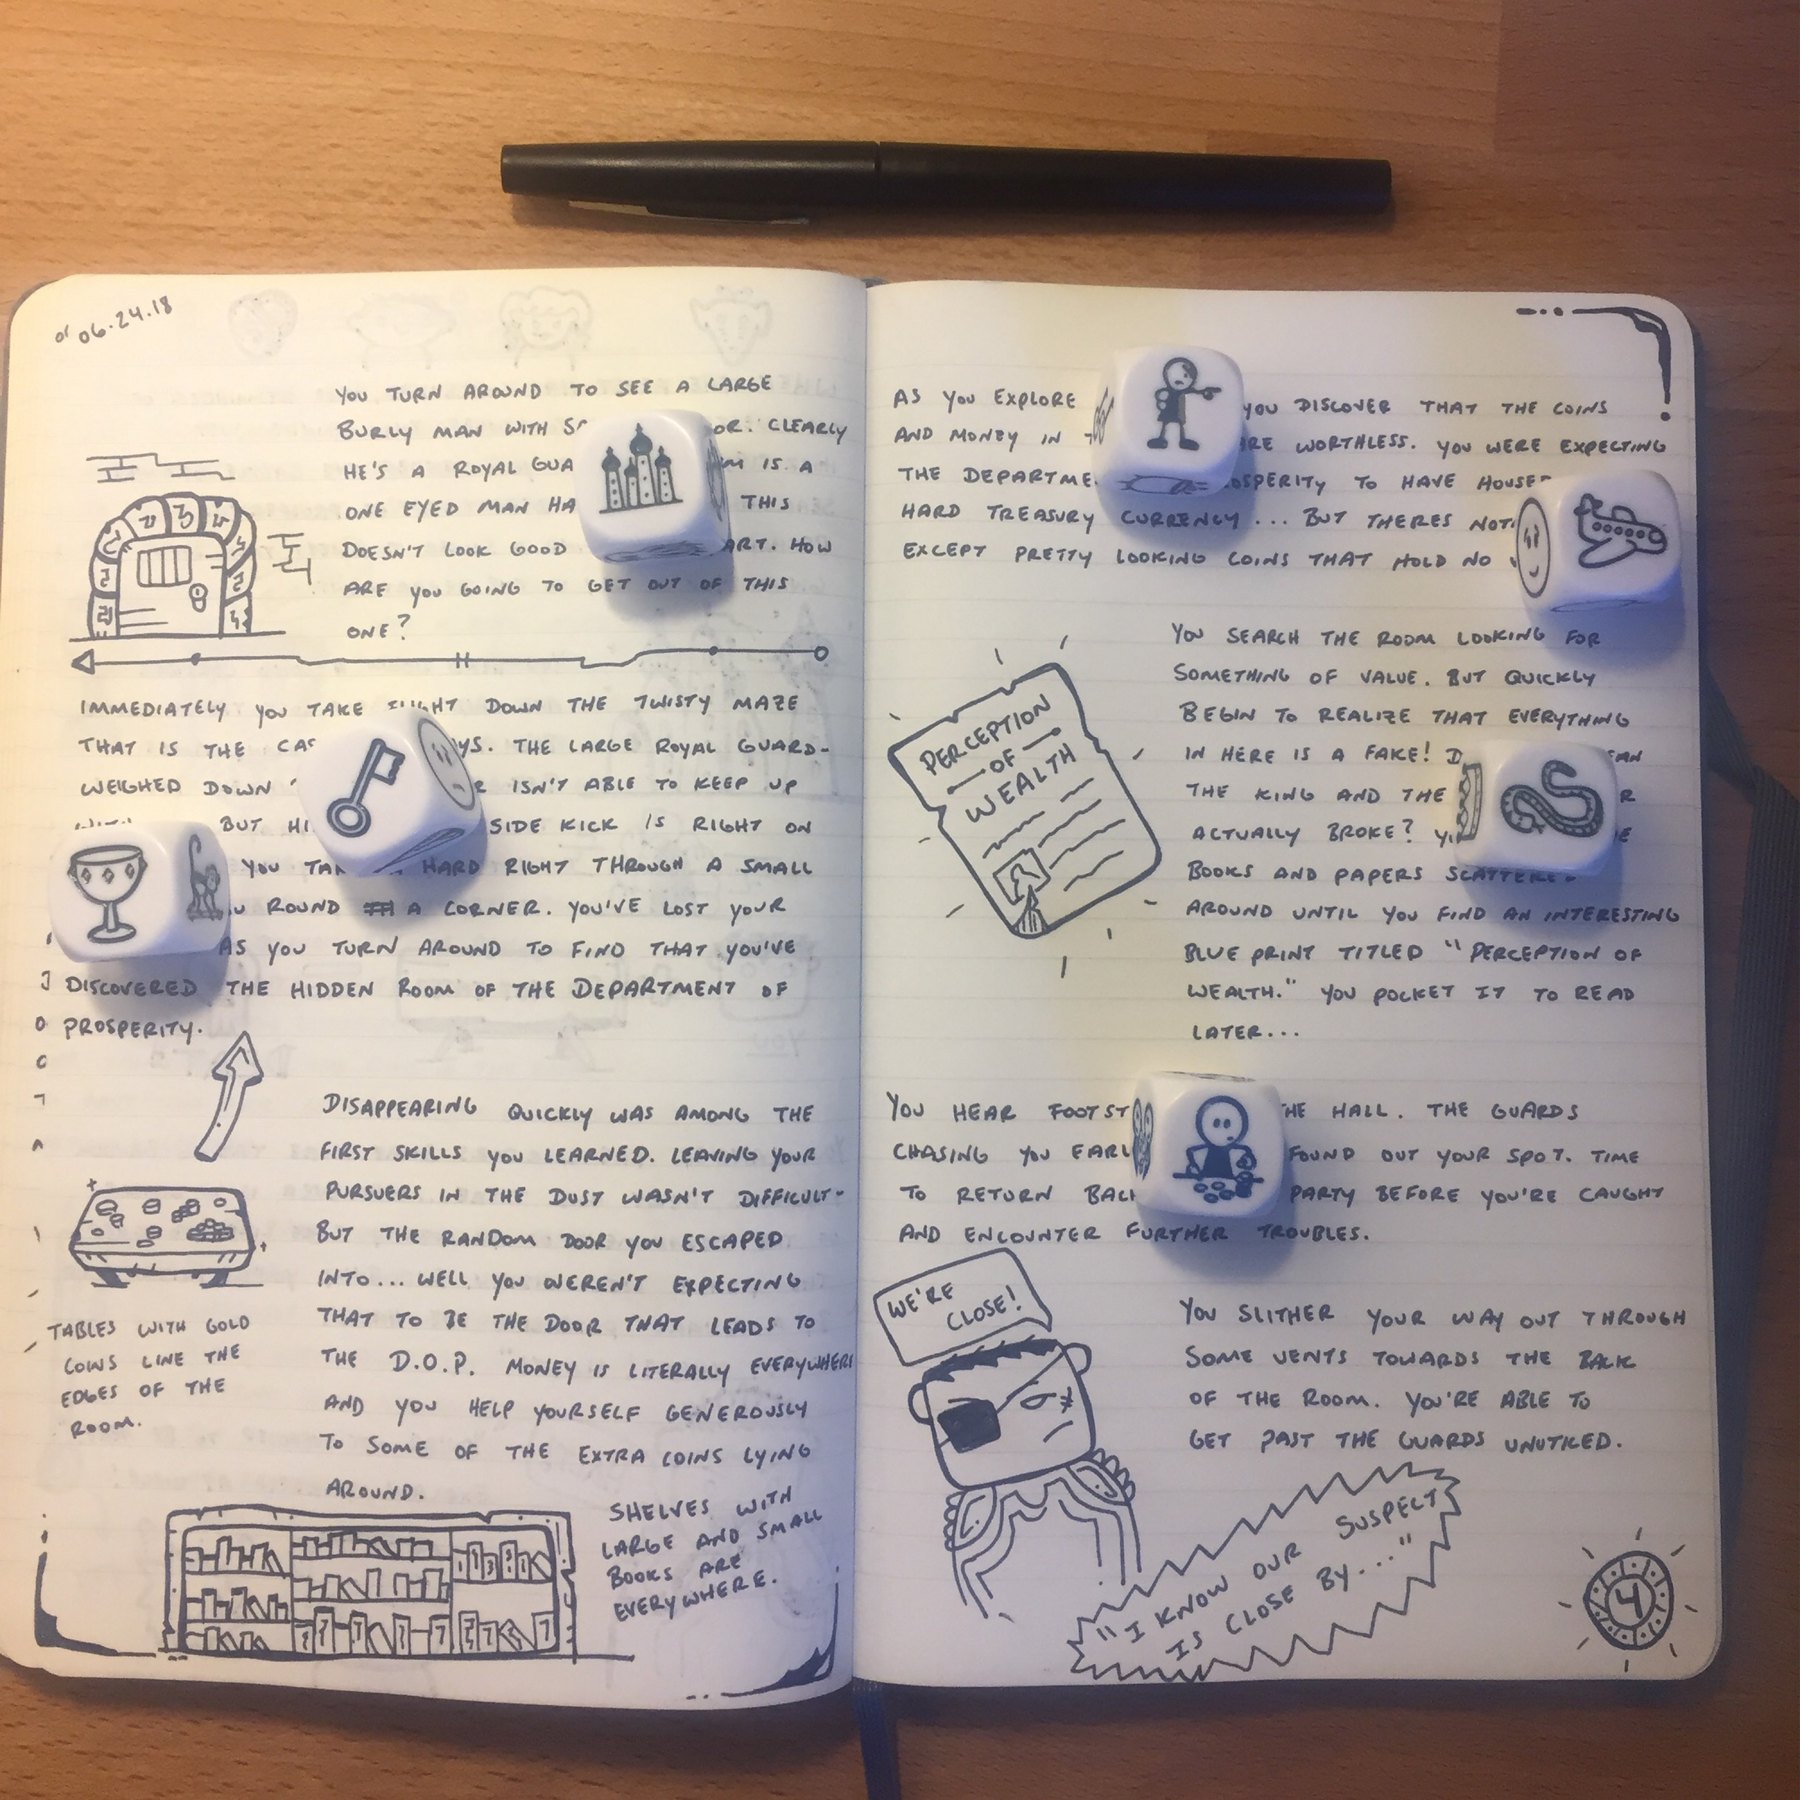 06.24.18
YOU TURN AROUND TO SEE A LARGE
BURLY MAN WITH CLEARLY
HE'S A ROYAL IS A
ONE EYED MAN THIS
DOESN'T LOOK GOOD HOW
ARE YOU GOING TO GET OUT OF THIS
ONE?
IMMEDIATELY YOU TAKE FLIGHT DOWN THE TWISTY MAZE
THAT IS THE THE LARGE ROYAL GUARD-
WEIGHED DOWN ISN'T ABLE TO KEEP UP
BUT SIDE KICK IS RIGHT ON
YOU HARD RIGHT THROUGH A SMALL
ROUND A CORNER. YOU'VE LOST YOUR
AS YOU TURN AROUND TO FIND THAT YOU'VE
DISCOVERED THE HIDDEN ROOM OF THE DEPARTMENT OF
PROSPERITY.
DISAPPEARING QUICKLY WAS AMONG THE
FIRST SKILLS YOU LEARNED. LEAVING YOUR
PURSUERS IN THE DUST WASN'T DIFFICULT-
BUT THE RANDOM DOOR YOU ESCAPED
INTO... WELL YOU WEREN'T EXPECTING
THAT TO BE THE DOOR THAT LEADS TO
THE D.O.P. MONEY IS LITERALLY EVERYWHERE
AND YOU HELP YOURSELF GENEROUSLY
TO SOME OF THE EXTRA COINS LYING
AROUND.
TABLES WITH GOLD
COINS LINE THE
EDGES OF THE
ROOM.
SHELVES WITH
LARGE AND SMALL
BOOKS ARE
EVERYWHERE.
AS YOU EXPLORE YOU DISCOVER THAT THE COINS
AND MONEY IN WORTHLESS. YOU WERE EXPECTING
THE TO HAVE
HARD TREASURY CURRENCY... BUT THERES
EXCEPT PRETTY LOOKING COINS THAT HOLD NO
YOU SEARCH THE ROOM LOOKING FOR
SOMETHING OF VALUE. BUT QUICKLY
BEGIN TO REALIZE THAT EVERYTHING
IN HERE IS A FAKE!
THE KING AND THE
ACTUALLY BROKE?
BOOKS AND PAPERS SCATTERED
AROUND UNTIL YOU FIND AN INTERESTING
BLUE PRINT TITLED "PERCEPTION OF
WEALTH." YOU POCKET IT TO READ
LATER...
PERCEPTION
OF
WEALTH
YOU HEAR HALL. THE GUARDS
CHASING YOU FOUND OUT YOUR SPOT. TIME
TO RETURN PARTY BEFORE YOU'RE CAUGHT
AND ENCOUNTER FURTHER TROUBLES.
WE'RE
CLOSE!
YOU SLITHER YOUR WAY OUT THROUGH
SOME VENTS TOWARDS THE BACK
OF THE ROOM. YOU'RE ABLE TO
GET PAST THE GUARDS UNOTICED.
"I KNOW OUR SUSPECT
IS CLOSE BY..."
4